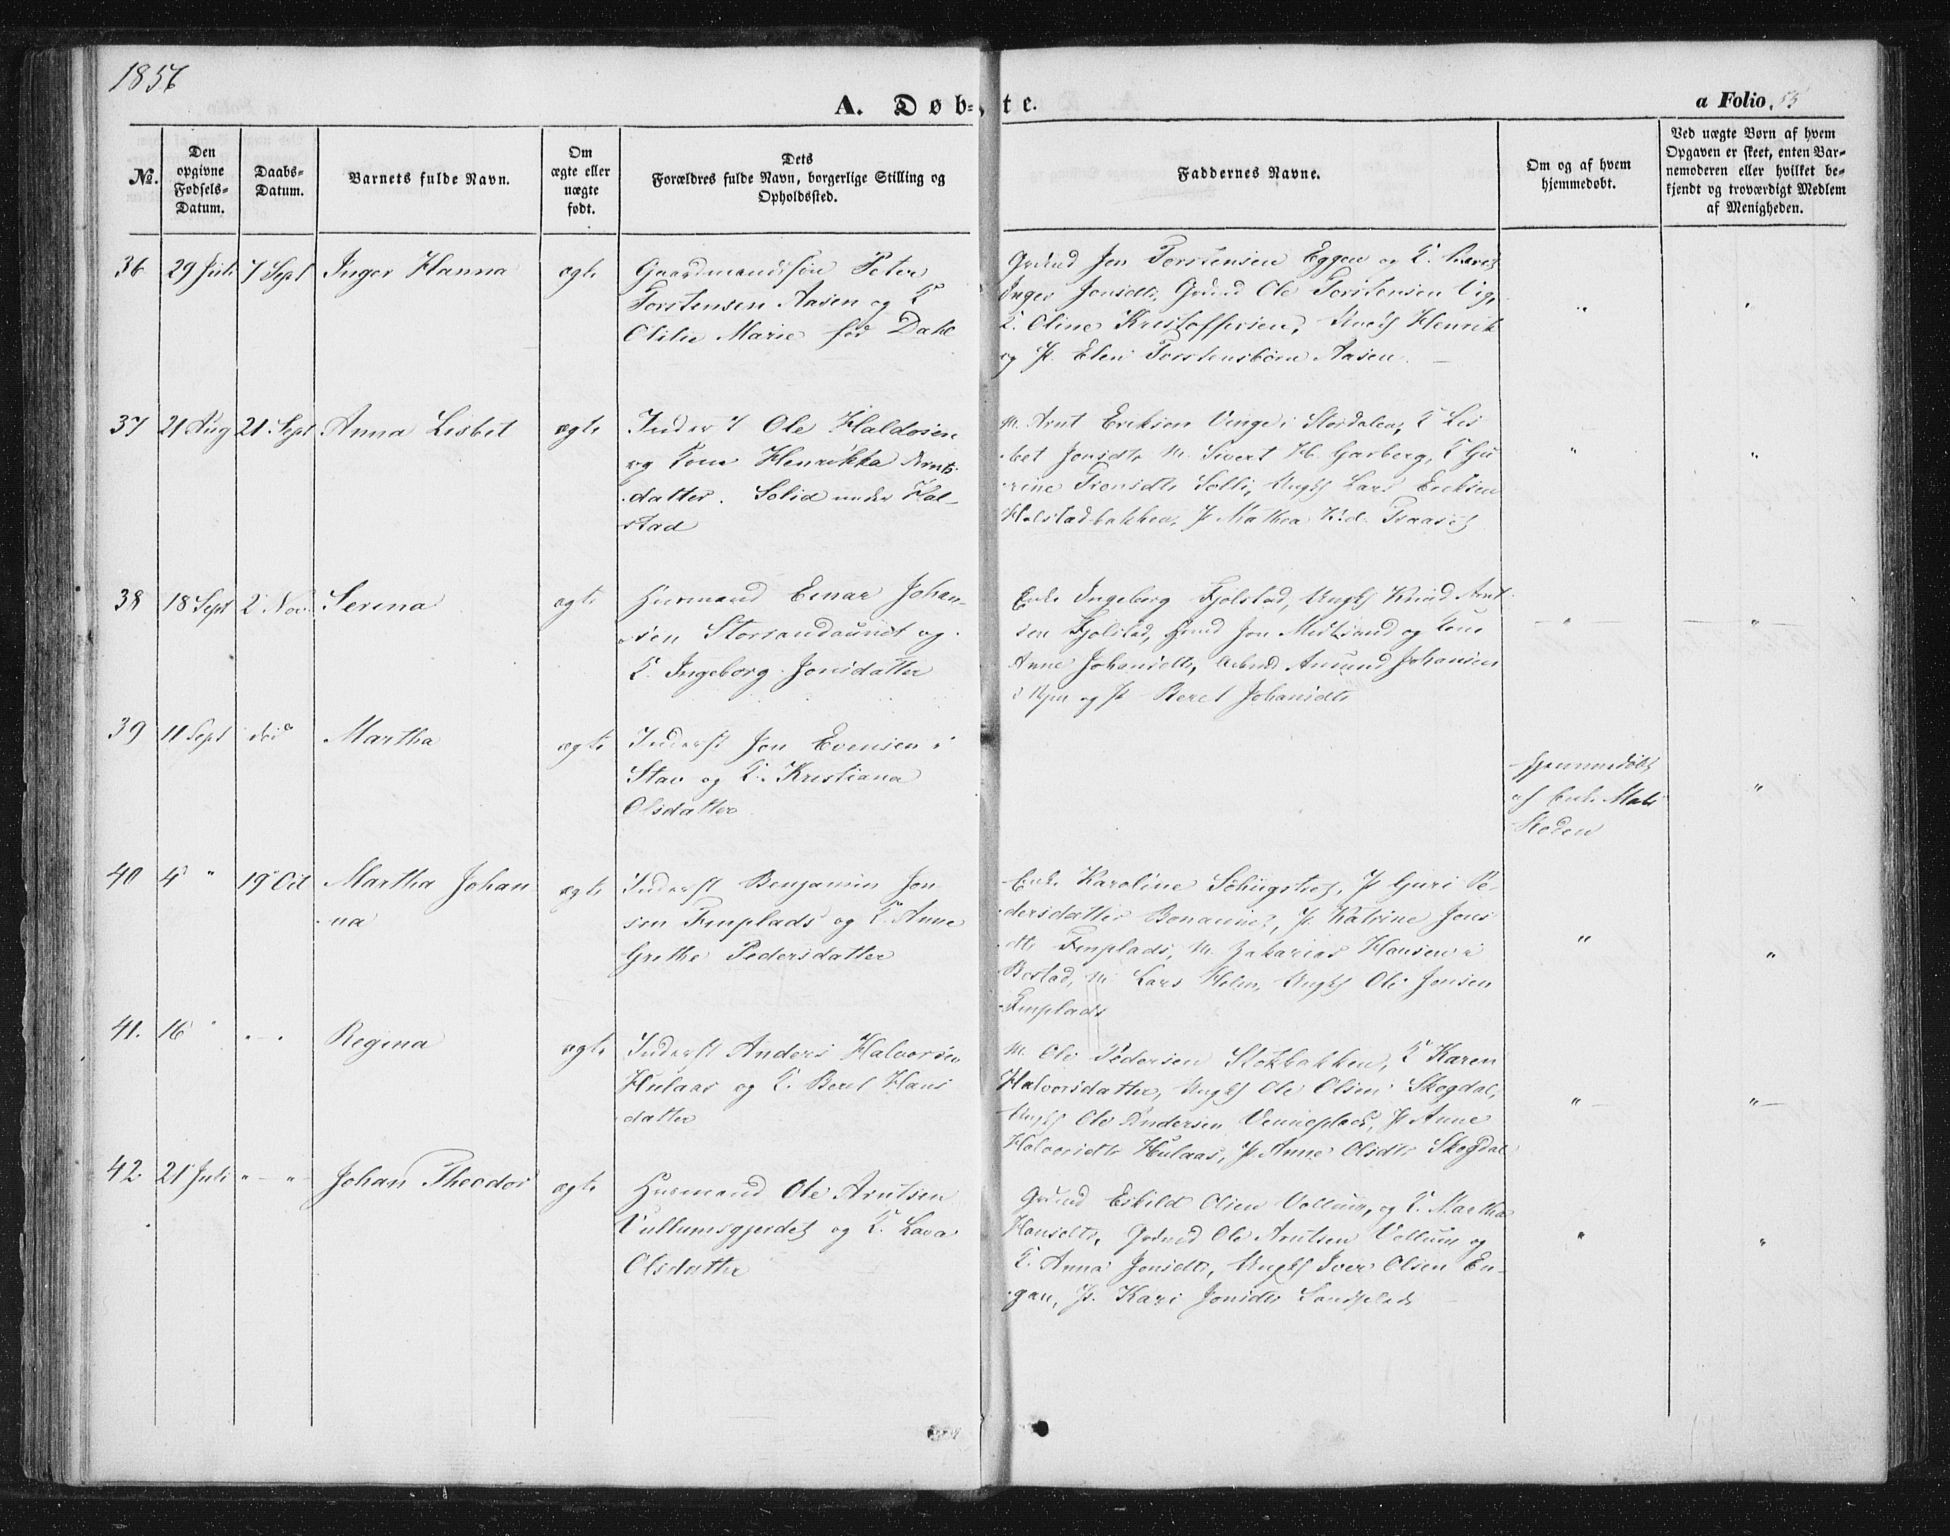 1856
A. Døb-te.
a Folio 55
№.
Den opgivne Fødsels-Datum.
Daabs-Datum.
Barnets fulde Navn.
Om ægte eller uægte født.
Dets
Forældres fulde Navn, borgerlige Stilling og
Opholdssted.
Faddernes Navne.
Om og af hvem
hjemmedøbt.
Ved uægte Børn af hvem
Opgaven er skeet, enten Bar-
nemoderen eller hvilket be-
kjendt og troværdigt Medlem
af Menigheden.
36 29 Juli 7 Sept Inger Hanna ægte
Gaardmandssøn Peter
Torstensen Aasen og K
Marie fød Dahl
Jon Torstensen Eggen og K.
Inger Jonsdtr, Ole Torstensen Vig,
K. Oline Kristoffersen, Henrik
og P. Elen Torstensbörn Aasen
37 21 Aug 21 Sept Anna Lisbet ægte
Inders Ole Haldosen
og Kone Henrikka Arnts
datter. Solid under Hal-
stad
M. Arnt Eriksen Vinge i Størdalen, K Lis
bet Jonsdtr M. Sivert H. Garberg, K Gu
rine Selli, Ungk Lars Eriksen
Halstadbakken, P Mathea
38 18 Sept 2 Nov Serina ægte
Husmand Einar Johan-
sen Storsandaunet og
K. Ingeborg Jonsdatter
Enke Ingeborg Fjolstad, Ungk Knud Arnt
sen Fjolstad, Jon Midtsand og Kone
Anne Johansdtr, Amund Johansen
og P Beret Johansdtr
39 11 Sept Martha ægte
Inderst Jon Evensen i
Stav og K. Kristiana
Olsdatter
Hjemmedöbt
af Enke
40 4 " 19 Oct Martha Johan
na ægte
Inderst Benjamin Jon
sen Fmplads og K. Anne
Grethe Pedersdatter
Enke Karoline P Guri Pe-
dersdatter P Katrine Jons
dtr Fmplads, M. Zakarias Hansen i
Bostad, M. Lars Holm, Ungk Ole Jonsen
Fmplads
41. 16 " " Regina ægte
Inderst Anders Halvorsen
Hulaas og K. Beret Hans
datter
M. Ole Pedersen Stokbakken, K Karen
Halvorsdatter, Ungk Ole Olsen Skogdal,
Ungk Ole Andersen P Anne
Halvorsdtr Hulaas, P Anne Olsdtr Skogdal
42. 21 Juli " " Johan Theodor ægte
Husmand Ole Arntsen
Vullumsgjerdet og K. Lava
Olsdatter
Eskild Olsen Vollum, og K. Martha
Hansdtr, Ole Arntsen Vollum og
K. Anna Jonsdtr, Ungk Iver Olsen En-
gan, P. Kari Jonsdtr Sandplads